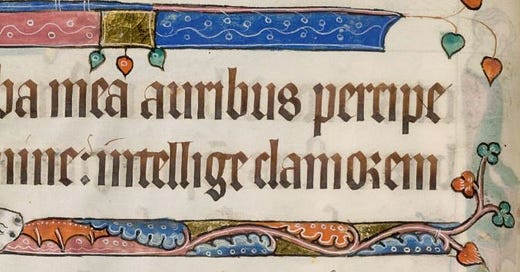 ba mea auribus percipe
mine: intellige clamorem